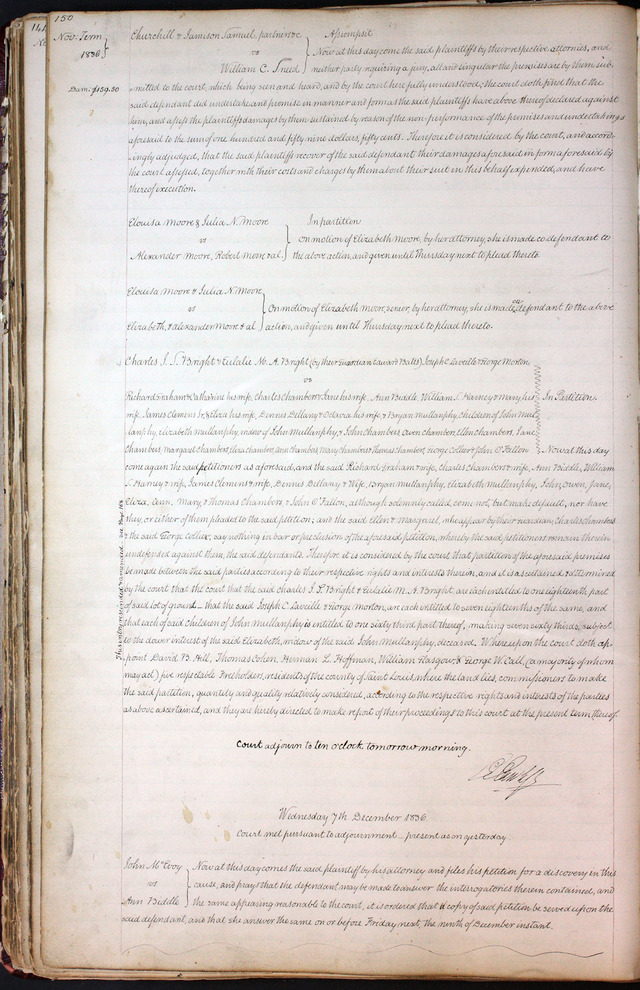 150
144
Nov. Term
1836
Churchill & Jamison Samuel, partners &c Assumpsit
vs Now at this day come the said plaintiffs by their respective attornies, and
William C. Sneed neither party requiring a jury, all and singular the premises are by them sub-
Dam: $159.50 mitted to the court, which being seen and heard, and by the court here fully understood; the court doth find that the
said defendant did undertake and promise in manner and form as the said plaintiffs have above thereof declared against
him, and assess the plaintiffs damages by them sustained by reason of the non-performance of the premises and undertaking
aforesaid to the sum of one hundred and fifty nine dollars, fifty cents. Therefore it is considered by the court, and accor-
ingly adjudged, that the said plaintiffs recover of the said defendant their damages aforesaid in form aforesaid by
the court assessed, together with their costs and charges by them about their suit in this behalf expended, and have
thereof execution.
Elouisa Moore & Julia N. Moore In partition
vs on motion of Elizabeth Moore, by her attorney, she is made co defendant to
Alexander Moore, Robert Moore & al. the above action, and given until Thursday next to plead thereto.
Elouisa Moore & Julia N. Moore
vs On motion of Elizabeth Moore, senior, by her attorney, she is made co defendant to the above
Elizabeth, & Alexander Moore & al action, and given until Thursday next to plead thereto.
Charles J. S. Bright & Eulalie M. A. Bright (by their Guardian Edward Batts) Joseph C. Laveille & George Morton
vs
Richard Graham & Catharine his wife, Charles Chambers & Jane his wife, Ann Biddle, William S. Harney & Mary, his In Partition
wife, James Clemens Jr & Eliza his wife, Dennis Dellany & Octavia his wife, & Bryan Mullanphy, Children of John Mul
lanphy, Elizabeth Mullanphy, widow of John Mullanphy, & John Chambers, Owen Chambers, Ellen Chambers, Jane
Chambers, Margaret Chambers, Eliza Chambers, Ann Chambers, Mary Chambers, Thomas Chambers, George Collier & John O'Fallon Now at this day
come again the said petitioners as aforesaid, and the said Richard Graham & wife, Charles Chambers & wife, Ann Biddle, William
S. Harney & wife, James Clemens & wife, Dennis Dellany & Wife, Bryan Mullanphy, Elizabeth Mullanphy, John, Owen, Jane,
Eliza, Ann, Mary, & Thomas Chambers, & John O'Fallon, although solemnly called, come not, but make default, nor have
they, or either of them pleaded to the said petition; and the said Ellen & Margaret, who appear by their Guardian, Charles Chambers
& the said George Collier, say nothing in bar or preclusion of the aforesaid petition, whereby the said petitioners remain therein
undefended against them, the said defendants. Therefore it is considered by the court that partition of the aforesaid premises
be made between the said parties according to their respective rights and interests therein, and it is ascertained & determined
by the court that the court that the said Charles J. S. Bright & Eulalie M. A. Bright are each entitled to one eighteenth part
of said lot of ground _ that the said Joseph C. Laveille & George Morton, are each entitled to seven eighteenths of the same, and
that each of said children of John Mullanphy is entitled to one sixty third part thereof, making seven sixty thirds, subject
to the dower interest of the said Elizabeth, widow of the said John Mullanphy, deceased. Whereupon the court doth ap-
point David B. Hill, Thomas Cohen, Herman L. Hoffman, William Glasgow, & George W. Call, (a majority of whom
may act) five respectable Freeholders, residents of the county of Saint Louis where the land lies, commissioners to make
the said partition, quantity and quality relatively considered, according to the respective rights and interests of the parties
as above ascertained, and they are hereby directed to make report of their proceedings to this court at the present term thereof.
Court adjourn to ten o'clock tomorrow morning.
Wednesday 7th December 1836
Court met pursuant to adjournment _ present as on yesterday.
John McEvoy Now at this day comes the said plaintiff by his attorney and files his petition for a discovery in this
vs cause, and prays that the defendant may be made to answer the interrogatories therein contained, and
Ann Biddle the same appearing reasonable to the court, it is ordered that a copy of said petition be served upon the
said defendant, and that she answer the same on or before Friday next, the ninth of December instant.